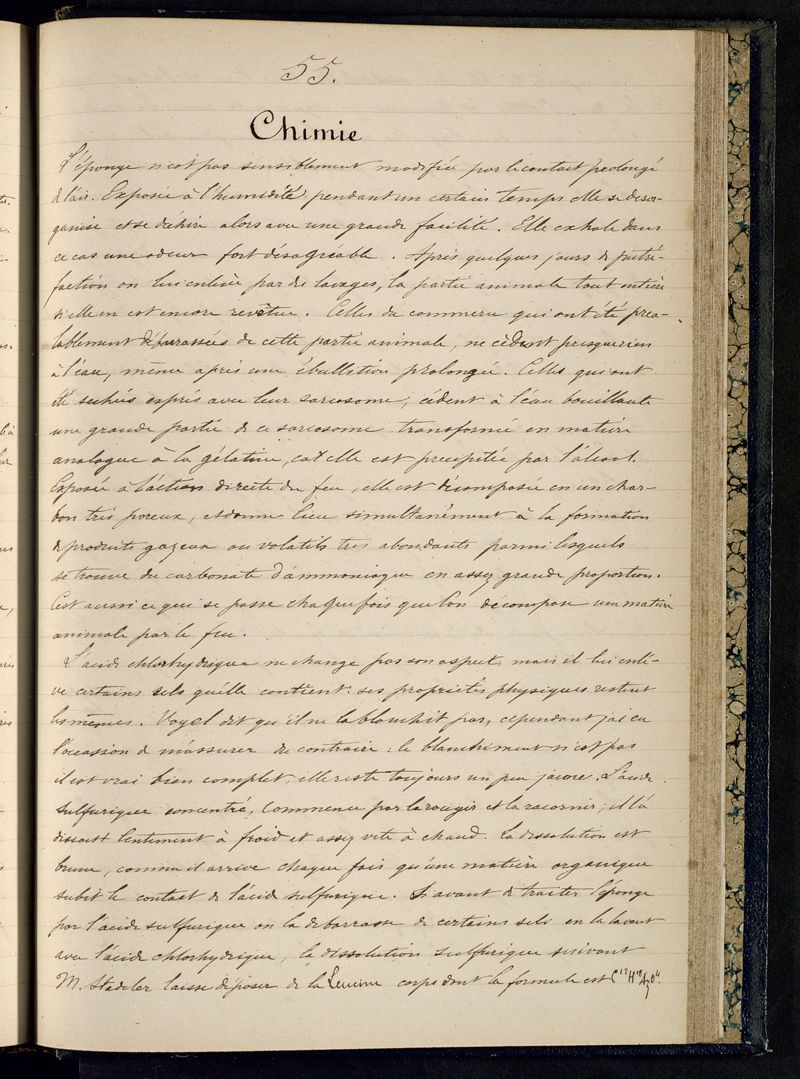 55.
Chimie
L'éponge n'est pas sensiblement modifiée par le contact prolongé
de l'air. Exposée à l'humidité pendant un certain temps elle se désor-
ganise et se déchire alors avec une grande facilité. Elle exhale dans
ce cas une odeur fort désagréable. Après quelques jours de putré-
faction on lui enlève par des lavages, la partie animale tout entière
si elle en est encore revêtue. Celles du commerce qui ont été préa-
lablement débarrassées de cette partie animale, ne cèdent presque rien
à l'eau, même après une ébullition prolongée. Celles qui ont
été séchées exprès avec leur sarcosome, cèdent à l'eau bouillante
une grande partie de ce sarcosome transformé en matière
analogue à la gélatine, car elle est precipitée par l'alcool.
Exposée à l'action directe du feu, elle est décomposée en un char-
bon très poreux, et donne lieu simultanément à la formation
de produits gazeux ou volatils très abondants parmi lesquels
se trouve du carbonate d'ammoniaque en assez grande proportion.
C'est aussi ce qui se passe chaque fois que l'on décompose une matière
animale par le feu.
L'acide chlorhydrique ne change pas son aspect, mais il lui enlè-
ve certains sels qu'elle contient. ses propriétés physiques restent
les mêmes. Vogel dit qu'il ne la blanchit pas, cependant j'ai eu
l'occasion de m'assurer du contraire: le blanchiment n'est pas
il est vrai bien complet, elle reste toujours un peu jaune. L'acide
sulfurique concentré, commence par la rougir et la racornir; il la
dissout lentement à froid et assez vite à chaud. La dissolution est
brune, comme il arrive chaque fois qu'une matière organique
subit le contact de l'acide sulfurique. Si avant de traiter l'éponge
par l'acide sulfurique on la debarrasse de certains sels en la lavant
avec l'acide chlorhydrique, la dissolution sulfurique suivant
M. Stadeler laisse déposer de la Leucine corps dont la formule est